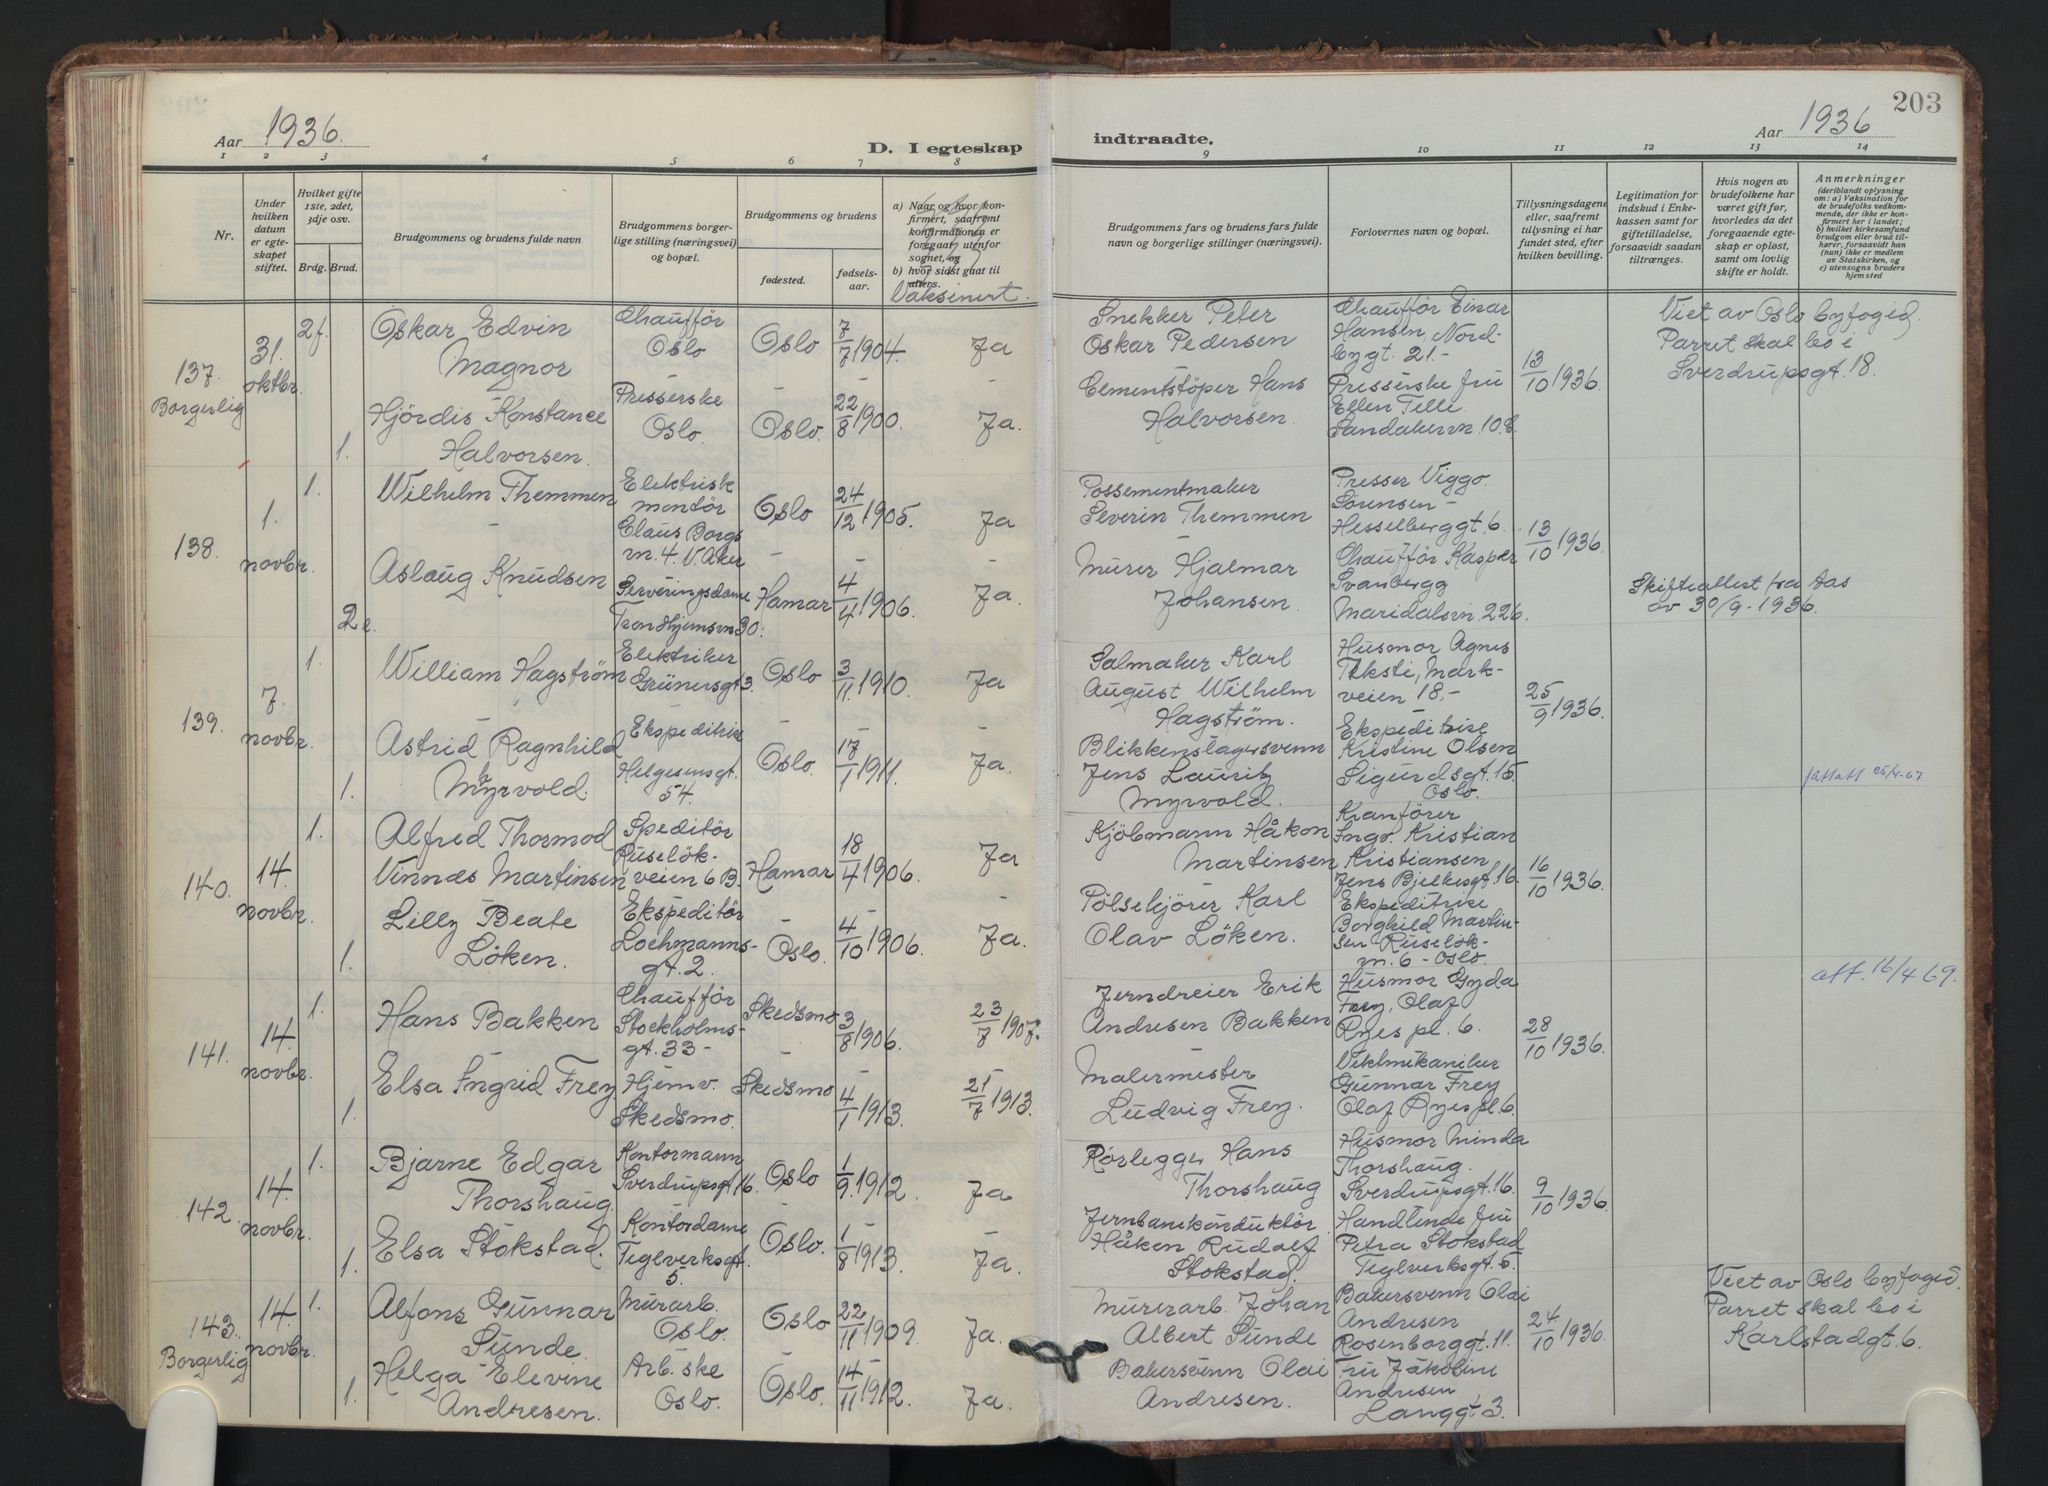 203
Aar 1936.
D. I egteskap
indtraadte.
Aar 1936
1 2 3 4 5 6 7 8 9 10 11 12 13 14
Nr.
Under hvilken datum er egteskapet stiftet.
Hvilket gifte 1ste, 2det, 3dje osv.
Brdg. Brud.
Brudgommens og brudens fulde navn
Brudgommens borgerlige stilling (næringsvei) og bopæl.
Brudgommens og brudens
fødested.
fødselsaar.
a) Naar og hvor konfirmert, saafremt konfirmationen er foregaat utenfor sognet, og
b) hvor sidst gaat til alters.
Vaksinert.
Brudgommens fars og brudens fars fulde navn og borgerlige stillinger (næringsvei).
Forlovernes navn og bopæl.
Tillysningsdagene eller, saafremt tillysning ei har fundet sted, efter hvilken bevilling.
Legitimation for indskud i Enkekassen samt for giftetilladelse, forsaavidt saadan tiltrænges.
Hvis nogen av brudefolkene har været gift før, hvorledes da det foregaaende egteskap er opløst, samt om lovlig skifte er holdt.
Anmerkninger
(deriblandt oplysning om: a) Vaksination for de brudefolks vedkommende, der ikke er konfirmert her i landet; b) hvilket kirkesamfund brudgom eller brud tilhører, forsaavidt han (hun) ikke er medlem av Statskirken, og c) utensogns bruders hjemsted
137. Borgerlig
31. oktbr.
2f.
Oskar Edvin
Magnor
Chaufför
Oslo
Oslo
7/7 1904.
Ja
Snekker Peter
Oskar Pedersen
Chaufför Einar
Hansen, Nord-
bygt. 21.-
13/10 1936.
Viet av Oslo byfogid.
Parret skal bo i
Sverdrupsgt. 18.
1.
Hjördis Konstance
Halvorsen.
Presserske
Oslo.
Oslo.
22/8 1900.
Ja.
Cementstöper Hans
Halvorsen.
Presserske fru
Ellen Telle
Sandakervn. 10.8.
138.
1. novbr.
1.
Wilhelm Themmen
Elektrisk
montör
Claus Borgs
vn. 4. V. Aker
Oslo
24/12 1905.
Ja
Possementmaker
Severin Themmen
Presser Viggo
Sörensen -
Hesselberggt. 6.
13/10 1936.
2e.
Aslaug Knudsen
Serveringsdame
Trondhjemsvn 30.
Hamar
4/4 1906.
Ja.
Murer Hjalmar
Johansen.
Chaufför Kasper
Svanbergg
Maridalsvn. 226.
Skifteattest fra Aas
av 30/9-1936.
139.
7. novbr.
1.
William Hagström
Elektriker
Grünersgt 3.
Oslo
3/11 1910.
Ja
Salmaker Karl
August Wilhelm
Hagström.
Husmor Agnes
Teksti, Mark-
veien 18.-
25/9 1936.
1.
Astrid Ragnhild
Myrvold.
Ekspeditrise
Helgesensgt.
54.
Oslo.
17/1 1911.
Ja.
Blikkenslagersvenn
Jens Lauritz
Myrvold.
Ekspeditrise
Kristine Olsen
Sigurdsgt. 15.
Oslo.
140.
14. novbr.
1.
Alfred Thormod
Vinnæs Martinsen
Speditör
Ruselök-
veien 6 B.
Hamar
18/4 1906.
Ja
Kjöbmann Håkon
Martinsen
Kranförer
Ingv. Kristian
Kristiansen
Jens Bjelkesgt. 16.
16/10 1936.
1.
Lilly Beate
Löken.
Ekspeditör
Lochmanns-
gt. 2.
Oslo.
4/10 1906.
Ja.
Pölsekjörer Karl
Olav Löken.
Ekspeditrise
Borghild Martin-
sen Ruselök-
vn. 6 - Oslo.
att. 16/4 69.
141.
14. novbr.
1.
Hans Bakken
Chaufför
Stockholms-
gt. 33 -
Skedsmo
3/8 1906.
23/7 1907.
Jerndreier Erik
Andresen Bakken
Husmor Gyda
Frey, Olaf
Ryes pl. 6.
28/10 1936.
1.
Elsa Ingrid Frey
Hjemv.
Skedsmo.
Skedsmo
4/1 1913.
21/7 1913.
Malermester
Ludvig Frey.
Vektmekaniker
Gunnar Frey
Olaf Ryes pl. 6.
142.
14. novbr.
1.
Bjarne Edgar
Thorshaug
Kontormann
Sverdrupsgt 16.
Oslo
1/9 1912.
Ja
Rørlegger Hans
Thorshaug
Husmor Minda
Thorshaug.
Sverdrupsgt. 16.
9/10 1936.
1.
Elsa Stokstad.
Kontordame
Teglverksgt.
5.
Oslo.
1/8 1913.
Ja.
Jernbanekonduktör
Håken Rudolf
Stokstad.
Handlende fru
Petra Stokstad
Teglverksgt. 5.
143. Borgerlig
14. novbr.
1.
Alfons Gunnar
Sunde.
Murarb.
Oslo.
Oslo
22/11 1909.
Ja.
Murerarb. Johan
Albert Sunde
Bakersvenn Olai
Andresen
Rosenborggt. 11.
24/10 1936.
Viet av Oslo byfogid.
Parret skal bo i
Karlstadgt. 6.
1.
Helga Elevine
Andresen.
Arb. ske
Oslo.
Oslo.
14/11 1912.
Ja.
Bakersvenn Olai
Andresen.
Fru Jakobine
Andresen
Langgt 3.